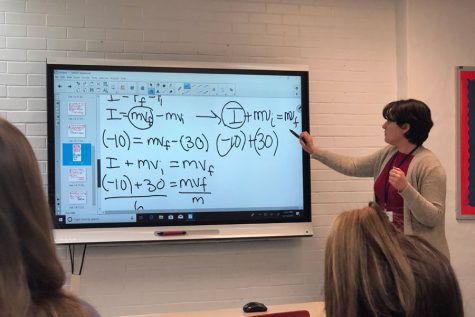 I = P_f - P_i
I = mv_f - mv_i → I + mv_i = mv_f
(-10) = mv_f - (30) (-10) + (30)
I + mv_i = mv_f
(-10) + 30 = mv_f
m